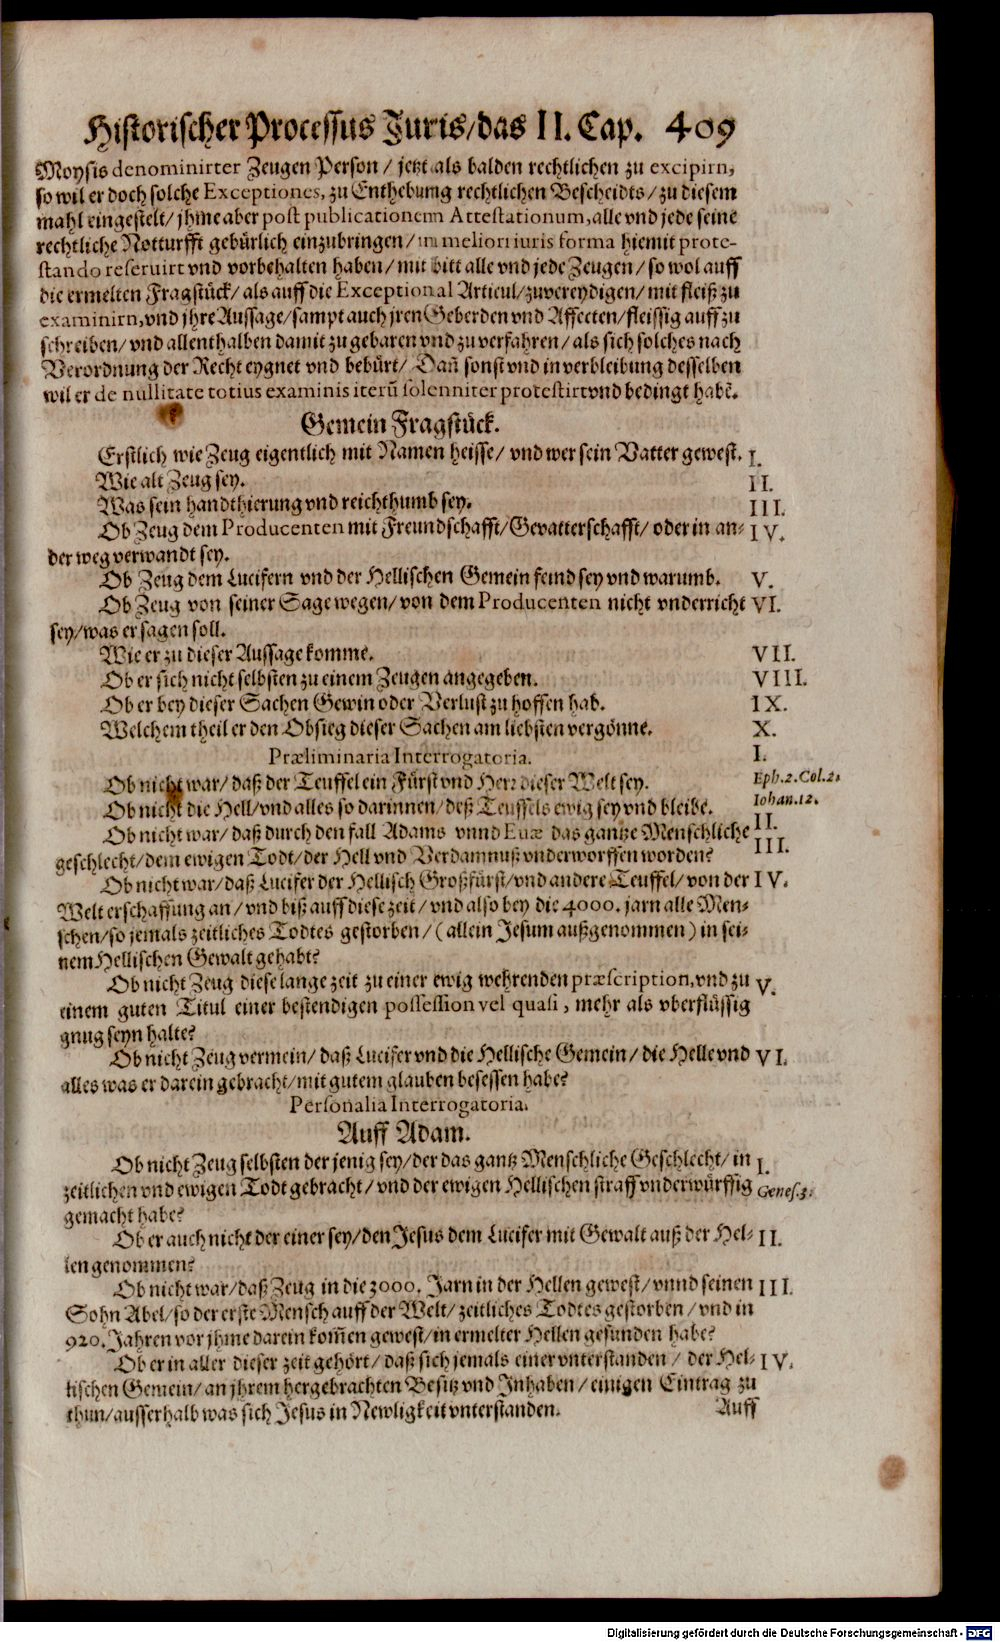 Historischer Processus Juris/das II. Cap. 409
Moysis denominirter Zeugen Person / jetzt als balden rechtlichen zu excipirn,
so wil er doch solche Exceptiones, zu Enthebung rechtlichen Bescheidts / zu diesem
mahl eingestelt / jhme aber post publicationem Attestationum, alle vnd jede seine
rechtliche Notturfft gebürlich einzubringen / in meliori iuris forma hiemit prote-
stando reseruirt vnd vorbehalten haben / mit bitt alle vnd jede Zeugen / so wol auff
die ermelten Fragstück / als auff die Exceptional Articul / zuvereydigen / mit fleiß zu
examinirn, vnd jhre Aussage / sampt auch jren Geberden vnd Affecten / fleissig auff zu
schreiben / vnd allenthalben damit zu gebaren vnd zu verfahren / als sich solches nach
Verordnung der Recht eygnet vnd bebürt / Dañ sonst vnd in verbleibung desselben
wil er de nullitate totius examinis iterũ solenniter protestirt vnd bedingt habẽ.
Gemein Fragstück.
Erstlich wie Zeug eigentlich mit Namen heisse / vnd wer sein Vatter gewest. I.
Wie alt Zeug sey. II.
Was sein handthierung vnd reichthumb sey. III.
Ob Zeug dem Producenten mit Freundschafft / Gevatterschafft / oder in an- IV.
der weg verwandt sey.
Ob Zeug dem Lucifern vnd der Hellischen Gemein feind sey vnd warumb. V.
Ob Zeug von seiner Sage wegen / von dem Producenten nicht vnderricht VI.
sey / was er sagen soll.
Wie er zu dieser Aussage komme. VII.
Ob er sich nicht selbsten zu einem Zeugen angegeben. VIII.
Ob er bey dieser Sachen Gewin oder Verlust zu hoffen hab. IX.
Welchem theil er den Obsieg dieser Sachen am liebsten vergönne. X.
Præliminaria Interrogatoria. I.
Ob nicht war / daß der Teuffel ein Fürst vnd Herr dieser Welt sey. Eph.2. Col.2.
Iohan.12.
Ob nicht die Hell / vnd alles so darinnen / deß Teuffels ewig sey vnd bleibe. II.
Ob nicht war / daß durch den fall Adams vnnd Euæ das gantze Menschliche III.
geschlecht / dem ewigen Todt / der Hell vnd Verdamnuß vnderworffen worden?
Ob nicht war / daß Lucifer der Hellisch Großfürst / vnd andere Teuffel / von der IV.
Welt erschaffung an / vnd biß auff diese zeit / vnd also bey die 4000. jarn alle Men-
schen / so jemals zeitliches Todtes gestorben / (allein Jesum außgenommen) in sei-
nem Hellischen Gewalt gehabt?
Ob nicht Zeug diese lange zeit zu einer ewig wehrenden præscription, vnd zu V.
einem guten Titul einer bestendigen possession vel quasi, mehr als vberflüssig
gnug seyn halte?
Ob nicht Zeug vermein / daß Lucifer vnd die Hellische Gemein / die Helle vnd VI.
alles was er darein gebracht / mit gutem glauben besessen habe?
Personalia Interrogatoria.
Auff Adam.
Ob nicht Zeug selbsten der jenig sey / der das gantz Menschliche Geschlecht / in I.
zeitlichen vnd ewigen Todt gebracht / vnd der ewigen Hellischen straff vnderwürffig Genes.3.
gemacht habe?
Ob er auch nicht der einer sey / den Jesus dem Lucifer mit Gewalt auß der Hel- II.
len genommen?
Ob nicht war / daß Zeug in die 3000. Jarn in der Hellen gewest / vnnd seinen III.
Sohn Abel / so der erste Mensch auff der Welt / zeitliches Todtes gestorben / vnd in
920. Jahren vor jhme darein kom̃en gewest / in ermelter Hellen gefunden habe?
Ob er in aller dieser zeit gehört / daß sich jemals einer vnterstanden / der Hel- IV.
lischen Gemein / an jhrem hergebrachten Besitz vnd Inhaben / einigen Eintrag zu
thun / ausserhalb was sich Jesus in Newligkeit vnterstanden.
Auff
Digitalisierung gefördert durch die Deutsche Forschungsgemeinschaft - DFG